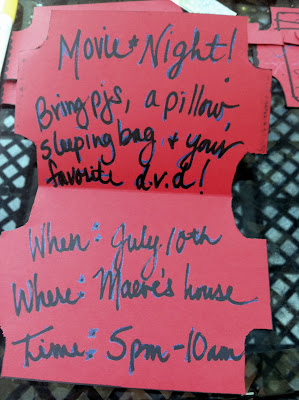 Movie Night!
Bring pjs, a pillow,
sleeping bag & your
favorite d.v.d!
When: July 10th
Where: Maeve's house
Time: 5pm-10am